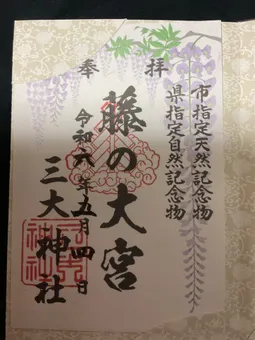 奉拝
市指定天然記念物
県指定自然記念物
藤の大宮
令和六年五月四日
三大神社